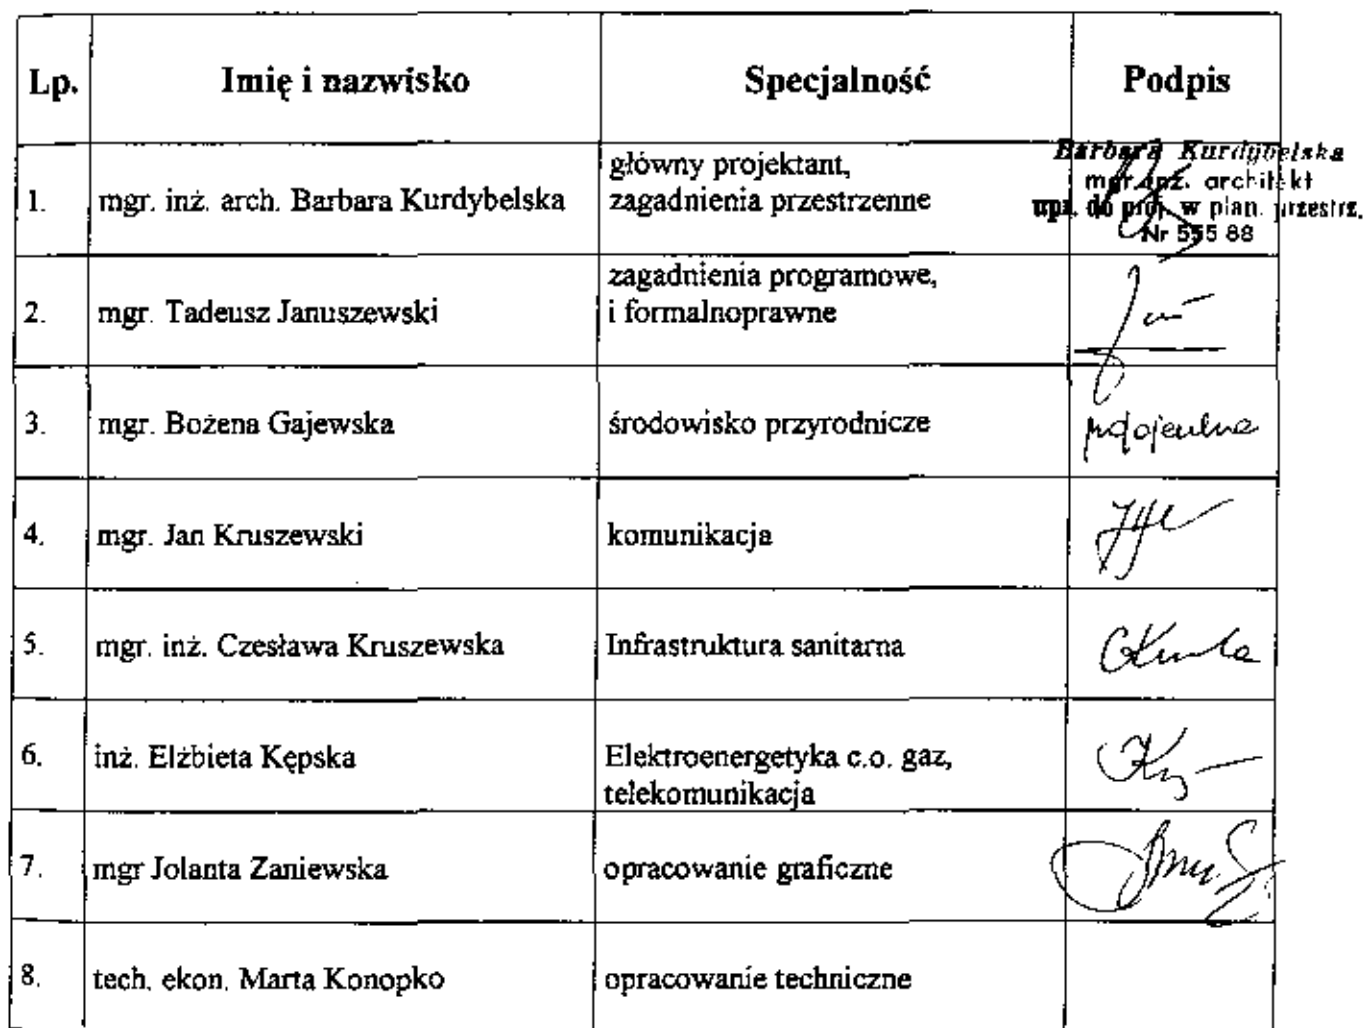 Lp. Imię i nazwisko Specjalność Podpis
1. mgr. inż. arch. Barbara Kurdybelska główny projektant,
zagadnienia przestrzenne
Barbara Kurdybelska
mgr. inż. architekt
upr. do proj. w plan. przestrz.
Nr 555 88
2. mgr. Tadeusz Januszewski zagadnienia programowe,
i formalnoprawne
3. mgr. Bożena Gajewska środowisko przyrodnicze
4. mgr. Jan Kruszewski komunikacja
5. mgr. inż. Czesława Kruszewska Infrastruktura sanitarna
6. inż. Elżbieta Kępska Elektroenergetyka c.o. gaz,
telekomunikacja
7. mgr Jolanta Zaniewska opracowanie graficzne
8. tech. ekon. Marta Konopko opracowanie techniczne